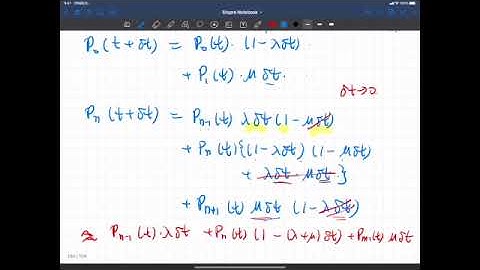 Shapre Notebook
P₀(t+δt) = P₀(t)·(1-λδt)
+ P₁(t)·μδt.
δt→0
Pₙ(t+δt) = Pₙ₋₁(t) λδt (1-μδt)
+ Pₙ(t){(1-λδt)(1-μδt)
+ λδt μδt}
+ Pₙ₊₁(t) μδt (1-λδt)
≈ Pₙ₋₁(t)·λδt + Pₙ(t)(1-(λ+μ)δt) + Pₙ₊₁(t) μδt